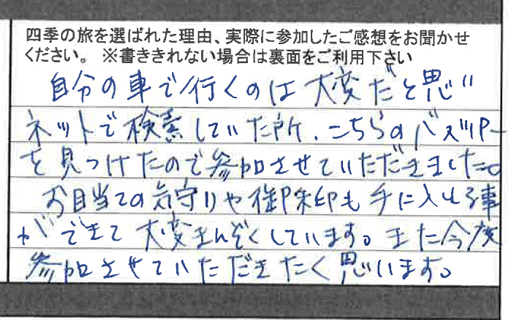 四季の旅を選ばれた理由、実際に参加したご感想をお聞かせ
ください。 ※書ききれない場合は裏面をご利用下さい
自分の車で行くのは大変だと思い
ネットで検索していた所、こちらのバスツアー
を見つけたので参加させていただきました。
お目当ての気守りや御朱印も手に入れる事
ができて大変まんぞくしています。また今度
参加させていただきたく思います。